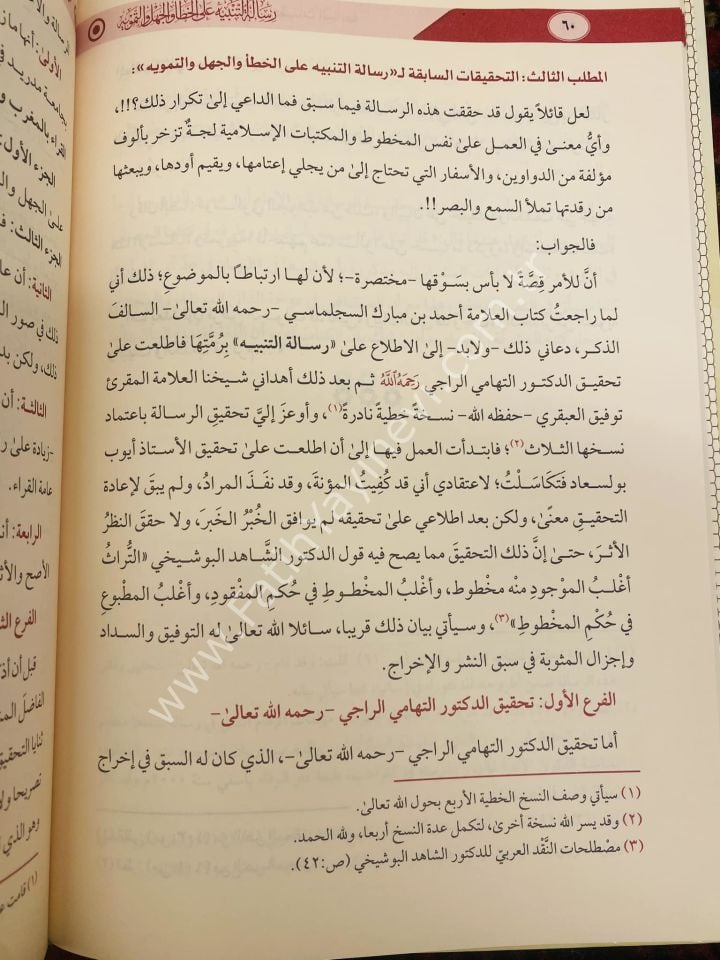 رسالة التنبيه على الخطأ والجهل والتمويه
٦٠
المطلب الثالث: التحقيقات السابقة لـ«رسالة التنبيه على الخطأ والجهل والتمويه»:
لعل قائلاً يقول قد حققت هذه الرسالة فيما سبق فما الداعي إلىٰ تكرار ذلك؟!!،
وأيُّ معنىٰ في العمل علىٰ نفس المخطوط والمكتبات الإسلامية لجةٌ تزخر بألوف
مؤلفة من الدواوين، والأسفار التي تحتاج إلىٰ من يجلي إعتامها، ويقيم أودها، ويبعثها
من رقدتها تملأ السمع والبصر!!.
فالجواب:
أنَّ للأمر قِصَّةً لا بأس بسَوْقها -مختصرة-؛ لأن لها ارتباطاً بالموضوع؛ ذلك أني
لما راجعتُ كتاب العلامة أحمد بن مبارك السجلماسي -رحمه الله تعالىٰ- السالفَ
الذكر، دعاني ذلك -ولابد- إلىٰ الاطلاع علىٰ «رسالة التنبيه» بِرُمَّتِهَا فاطلعت علىٰ
تحقيق الدكتور التهامي الراجي رَحِمَهُ اللَّهُ ثم بعد ذلك أهداني شيخنا العلامة المقرئ
توفيق العبقري -حفظه الله- نسخةً خطيةً نادرةً(١)، وأوعز إليَّ تحقيق الرسالة باعتماد
نسخها الثلاث(٢)؛ فابتدأت العمل فيها إلىٰ أن اطلعت علىٰ تحقيق الأستاذ أيوب
بولسعاد فَتَكَاسَلْتُ؛ لاعتقادي أني قد كُفِيتُ المؤنةَ، وقد نفَذَ المرادُ، ولم يبق لإعادة
التحقيق معنًىٰ، ولكن بعد اطلاعي علىٰ تحقيقه لم يوافق الخُبْرُ الخبَرَ، ولا حقق النظرُ
الأثرَ، حتىٰ إنَّ ذلك التحقيق مما يصح فيه قول الدكتور الشَّاهد البوشيخي «التُّراثُ
أغْلبُ الموْجودِ منْه مخْطوط، وأغْلبُ المخْطوطِ في حُكمِ المفْقودِ، وأغْلب المطبوعِ
في حُكْمِ المخطوطِ»(٣)، وسيأتي بيان ذلك قريبا، سائلا الله تعالىٰ له التوفيق والسداد
وإجزال المثوبة في سبق النشر والإخراج.
الفرع الأول: تحقيق الدكتور التهامي الراجي -رحمه الله تعالىٰ-
أما تحقيق الدكتور التهامي الراجي -رحمه الله تعالىٰ-، الذي كان له السبق في إخراج
(١) سيأتي وصف النسخ الخطية الأربع بحول الله تعالىٰ.
(٢) وقد يسر الله نسخة أخرىٰ، لتكمل عدة النسخ أربعا، ولله الحمد.
(٣) مصْطلحات النَّقْد العربيّ للدكتور الشاهد البوشيخي (ص:٤٢).
الرسالة
الأولىٰ: أنها
بجامعة مدريد
القراء بالمغرب
الجزء الأول:
علىٰ الجهل
الجزء الثالث:
الثانية: أن
ذلك في صور
ذلك، ولكن
الثالثة: أن
-زيادة علىٰ
عامة القراء.
الرابعة:
الأصح
الفرع
قبل أن
الفاضل
ثنايا التحقيق
تصريحا
وهو الذي
(١) قامت
www.fatihyayinevi.com.tr